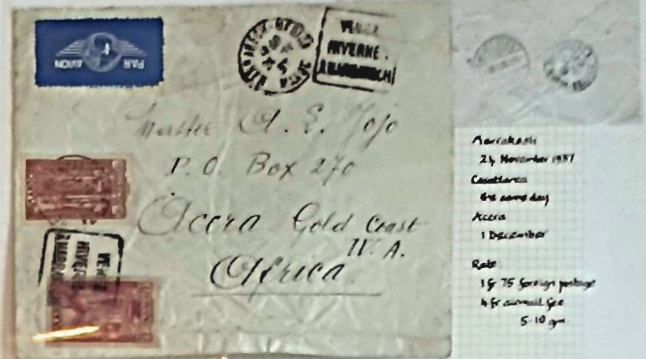 PAR AVION
VENEZ
HIVERNER A
MARRAKECH
Master A. E. Jojo
P.O. Box 270
Accra Gold Coast
W.A.
Africa
VENEZ
HIVERNER
A MARRAKECH
Marrakesh
24 November 1937
Casablanca
the same day
Accra
1 December
Rate
1 fr 75 foreign postage
4 fr airmail fee
5-10 gm